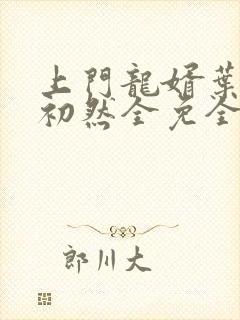 上門龍婿葉
初然全免全
郎川大